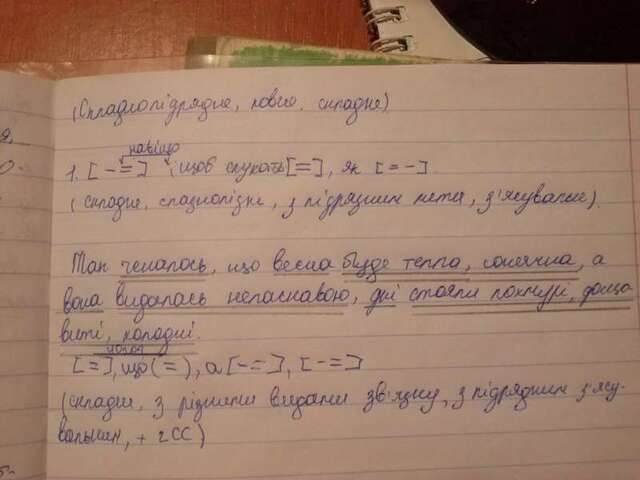 (Складнопідрядне, повно. складне)
навіщо
1. [ - = ] , щоб слухать [ = ], як [ = - ].
(складне, складнопідр , з підрядним мети, з'ясувальне).
Так чекалось, що весна буде тепла, сонячна, а
вона видалась неласкавою, дні стояли похмурі, доща
виті, холодні.
[ = ], що ( = ), а [ - = ], [ - = ]
(складне, з різними видами зв'язку, з підрядним з'ясу-
вальним, + 2СС)